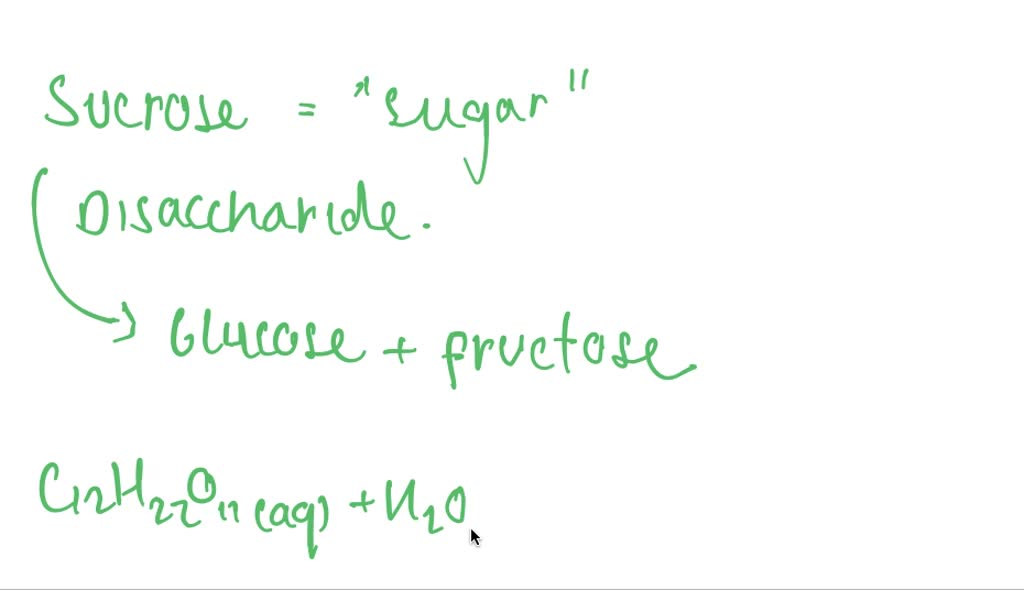 Sucrose = "sugar"
Disaccharide.
Glucose + fructose
C₁₂H₂₂O₁₁ (aq) + H₂O